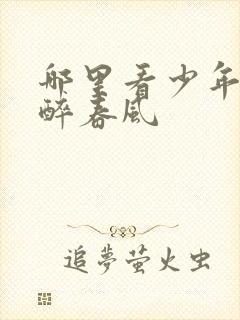 哪里看少年
醉春风
追夢萤火虫